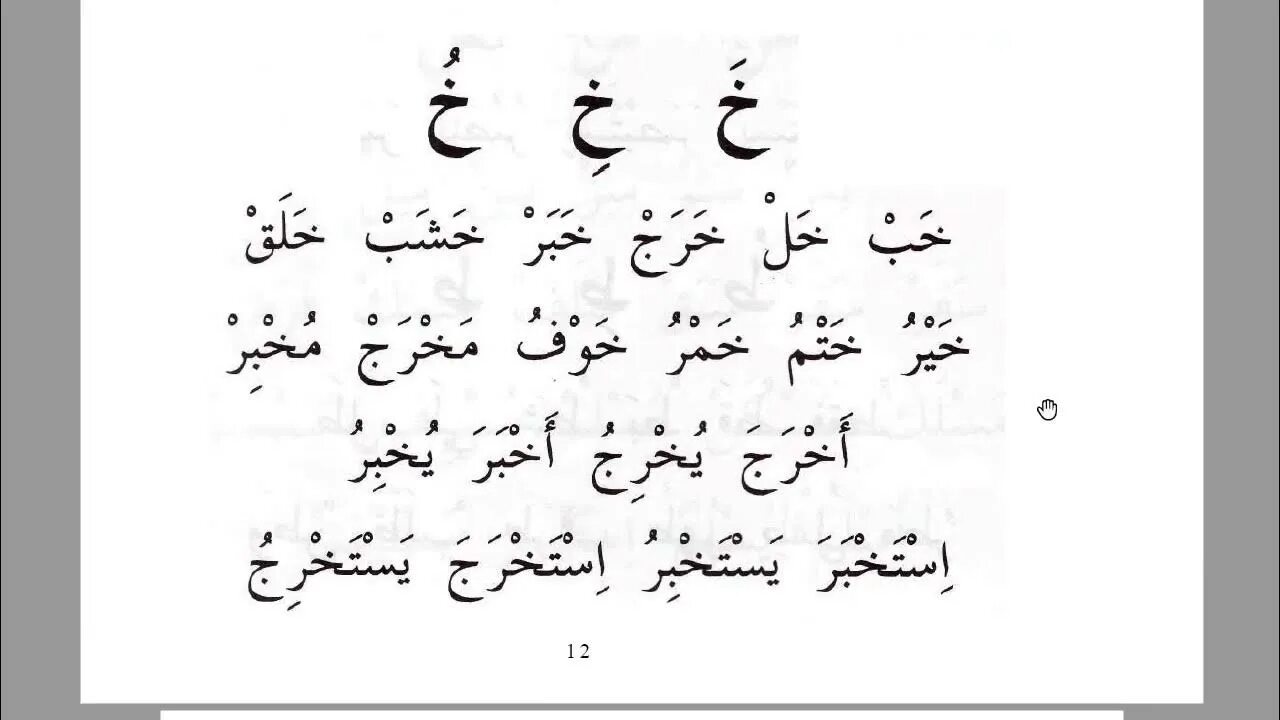 خَ خِ خُ
خَبْ خَلْ خَرَجْ خَبَرْ خَشَبْ خَلَقْ
خَيْرُ خَتْمُ خَمْرُ خَوْفُ مَخْرَجْ مُخْبِرْ
أَخْرَجَ يُخْرِجُ أَخْبَرَ يُخْبِرُ
اِسْتَخْبَرَ يَسْتَخْبِرُ اِسْتَخْرَجَ يَسْتَخْرِجُ
12